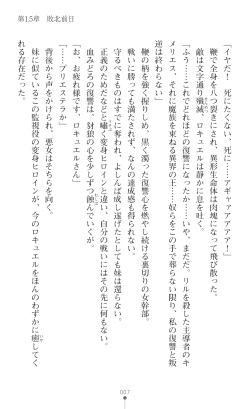 第15章　敗北前日
「イヤだ！　死にたくない、死に……アギャアアアア！」
鞭で全身を八つ裂きにされ、異形生命体は肉塊になって飛び散った。
敵は文字通り殲滅、ロキュエルは静かに息を吐く。
「ふう……これでどれほどの復讐になったか……いや、まだだ。リルを殺した主導者のキ
メリエス、それに魔族を束ねる異界の王……奴らをこの手で葬らない限り、私の復讐と叛
逆は終わらない」
鞭の柄を強く握りしめ、黒く濁った復讐心を燃やし続ける裏切りの女幹部。
戦いに勝っても満たされず、なんの達成感も得られない。
守るべきものはすでに奪われ、よしんば成し遂げたとしても妹は還らない。
正義のためだなどと嘯く変身ヒロインと違い、自分の戦いにはその先に何もない。
血みどろの復讐は、孤狼の心を少しずつ蝕んでいくが。
「……プリエステラか」
「お疲れさまです、ロキュエルさん」
背後から声をかけられ、悪女はそちらを向く。
妹に似ているこの監視役の変身ヒロインが、今のロキュエルをほんのわずかに癒してく
れる存在だった。
007